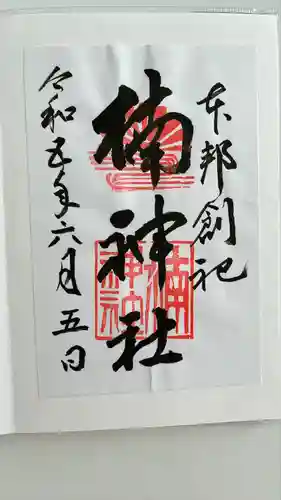 本邦創祀
楠神社
令和五年六月五日
楠神社